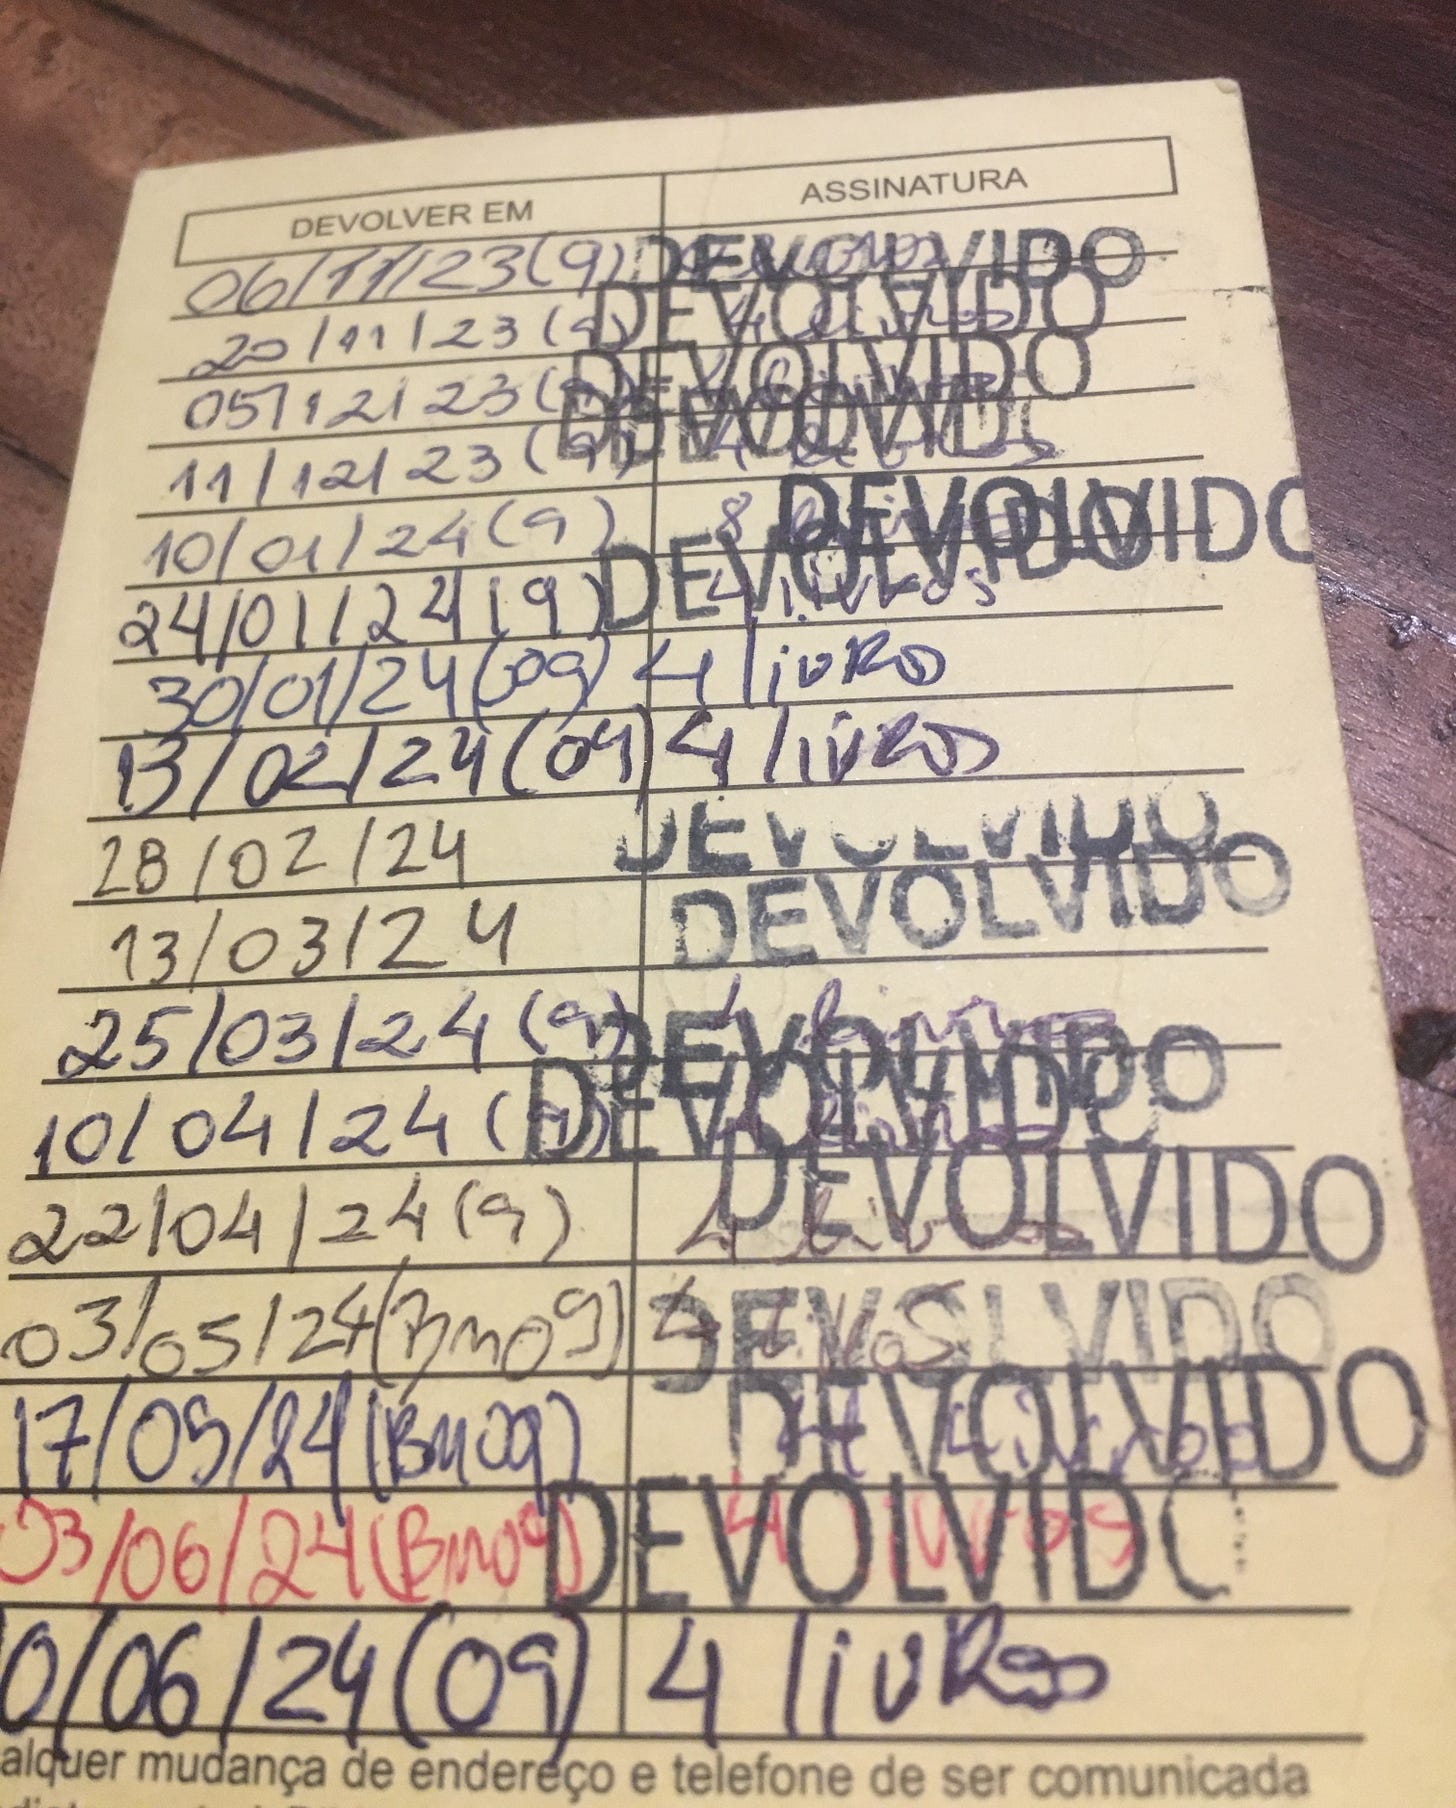 DEVOLVER EM ASSINATURA
06/11/23(9) DEVOLVIDO
20/11/23(9) 4 livros DEVOLVIDO
05/12/23(9) DEVOLVIDO
11/12/23(9) 4 livros DEVOLVIDO
10/01/24(9) 8 livros DEVOLVIDO
24/01/24(9) 4 livros DEVOLVIDO
30/01/24(09) 4 livRo
13/02/24(09) 4 livRos
28/02/24 DEVOLVIDO
13/03/24 DEVOLVIDO
25/03/24(9) 4 livros DEVOLVIDO
10/04/24(9) 4 livros DEVOLVIDO
22/04/24(9) 4 livros DEVOLVIDO
03/05/24(Bm09) 4 livros DEVOLVIDO
17/05/24(Bm09) 4 livros DEVOLVIDO
03/06/24(Bm09) 4 livros DEVOLVIDO
0/06/24(09) 4 livRos
alquer mudança de endereço e telefone de ser comunicada